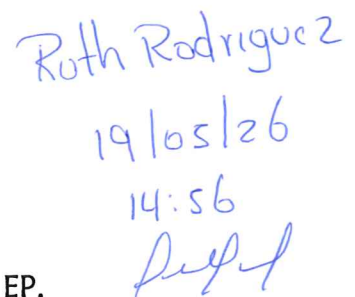 Ruth Rodriguez
19/05/26
14:56
EP.